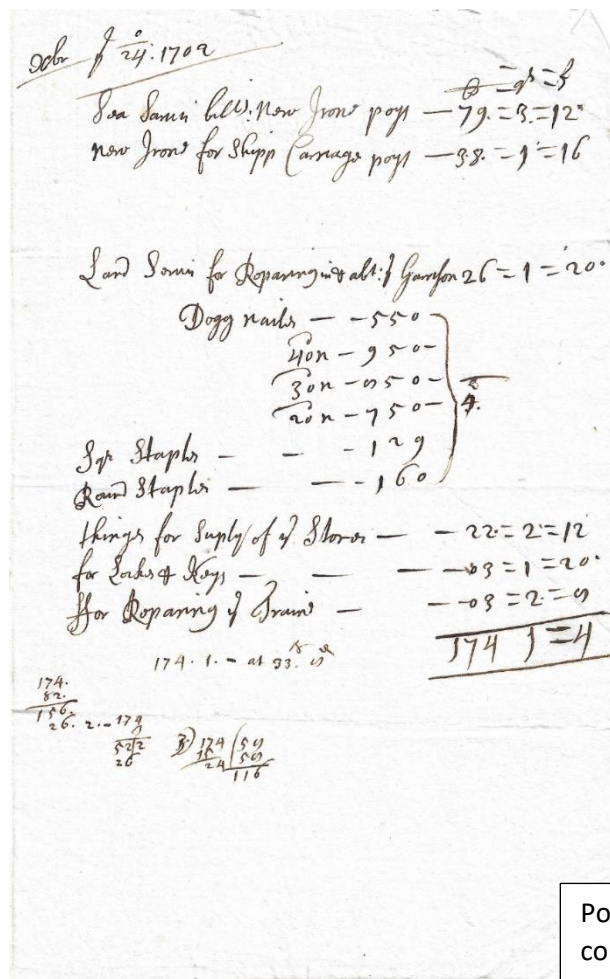 24. 1702
Sea Servic bills: New Irone — 79. = 3. = 12
New Irone for Shipp Carriage — 38. = 1 = 16
Land Servic for Reparing in & abt: ye Garrison 26 = 1 = 20
Dogg nailes — - 550
40n - 950 -
30n - 850 -
20n - 750 -
4.
Sqr Staples - - - 129
Round Staples — — - 160
things for Suply of ye Stores — - 22 = 2 = 12
for Lockes & Keys — — — 03 = 1 = 20
ffor Reparing ye Traine — — 03 = 2 = 8
174 1 = 4
174. 1. - at 33.s 8d
174.
156.
26. 2. -
522
26
3) 174 (58
24 58
116
Po
co